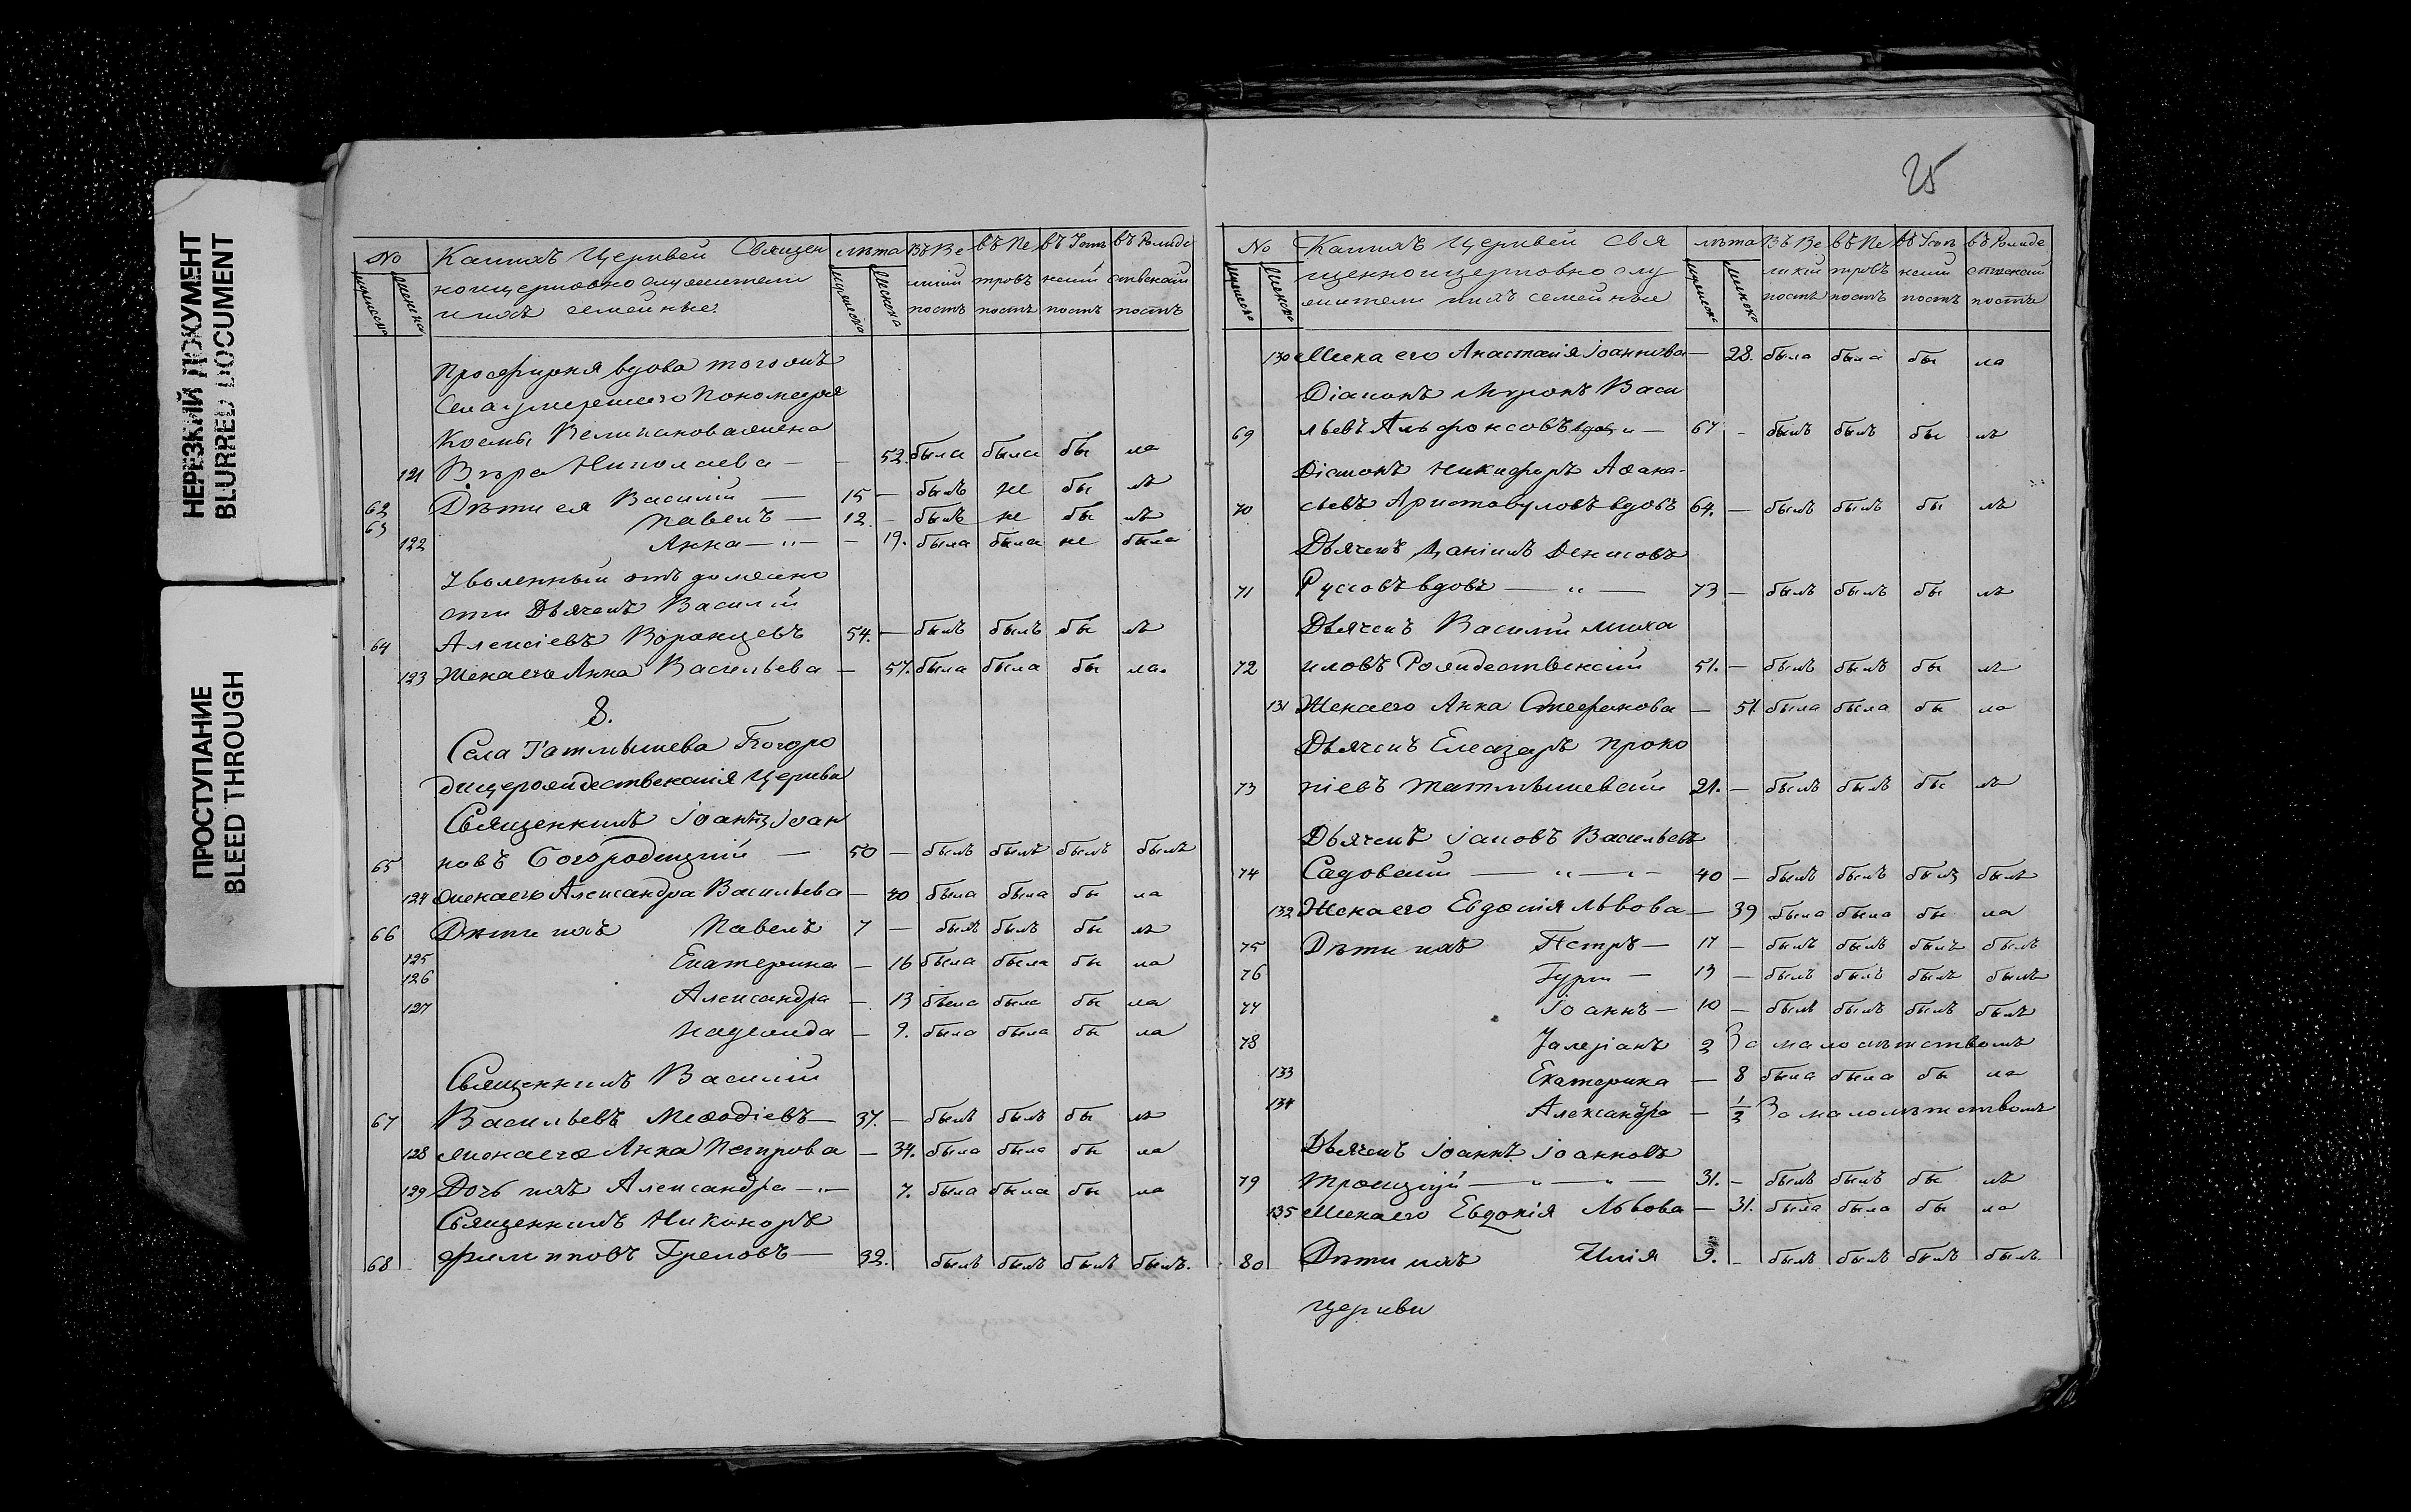 НЕРЕЗКИЙ ДОКУМЕНТ
BLURRED DOCUMENT
ПРОСТУПАНИЕ
BLEED THROUGH
No Какихъ Церквей Священ лѣта Въ Ве въ Пе въ Успе въ Рожде
ноцерковно служители ликій тровъ нскій ственскій
и ихъ семейные постъ постъ постъ постъ
мужеска женска мужеска женска
Просфирня вдова тогожъ
Села умершаго Пономаря
Космы жена
121 Вѣра Николаева — — 52. была была бы ла
62 Дѣти ея Василій — 15 — былъ не бы лъ
63 Павелъ — 12. — былъ не бы лъ
122 Анна — " — — 19. была была не была
Уволенный отъ должно
сти Дьячекъ Василій
64 Алексіевъ Воронцевъ 54. — былъ былъ бы лъ
123 Жена его Анна Васильева — 57. была была бы ла.
8.
Села Татмышева Богоро
дицерождественскія Церкви
Священникъ Іоаннъ Іоан
65 новъ Богородицкій — 50 — былъ былъ былъ былъ
124 жена его Александра Васильева — 40 была была бы ла
66 Дѣти ихъ Павелъ 7 — былъ былъ бы лъ
125 Екатерина — 16 была была бы ла
126 Александра — 13 была была бы ла
127 Надежда — 9. была была бы ла
Священникъ Василій
67 Васильевъ Меѳодіевъ — 37. — былъ былъ бы лъ
128 жена его Анна Петрова — 34. была была бы ла
129 Дочь ихъ Александра — " — 7. была была бы ла
Священникъ Никоноръ
68 Филипповъ Грековъ — 32. былъ былъ былъ былъ.
25
No Какихъ Церквей Свя лѣта Въ Ве въ Пе въ Успе въ Рожде
щенноцерковно слу ликій тровъ нскій ственскій
жители ихъ семейные постъ постъ постъ постъ
мужеска женска мужеска женска
130 Жена его Анастасія Іоаннова — 28. была была бы ла
Діаконъ Миронъ Васи
69 льевъ Альфонсовъ вдовъ — 67 - былъ былъ бы лъ
Діаконъ Никифоръ Аѳана-
70 сьевъ Аристовуловъ вдовъ 64. — былъ былъ бы лъ
Дьячекъ Даніилъ Денисовъ
71 Руссовъ вдовъ — " — 73 — былъ былъ бы лъ
Дьячекъ Василій Миха
72 иловъ Рождественскій 51. — былъ былъ бы лъ
131 Жена его Анна Стефанова — 51 была была бы ла
Дьячекъ Елеазаръ Проко
73 піевъ Татмышевскій 21. — былъ былъ бы лъ
Дьячекъ Іаковъ Васильевъ
74 Садовскій — " — " — 40 — былъ былъ былъ былъ
132 Жена его Евдокія Львова — 39 была была бы ла
75 Дѣти ихъ Петръ — 17 — былъ былъ былъ былъ
76 Гурій — 13 — былъ былъ былъ былъ
77 Іоаннъ — 10 — былъ былъ былъ былъ
78 2 За малолѣтствомъ
133 Екатерина — 8 была была бы ла
134 Александра — 1/2 За малолѣтствомъ
Дьячекъ Іоаннъ Іоанновъ
79 Троицкій — " — " — 31. — былъ былъ бы лъ
135 Жена его Евдокія Львова — 31. была была бы ла
80 Дѣти ихъ Илія 9. — былъ былъ былъ былъ.
Церкви